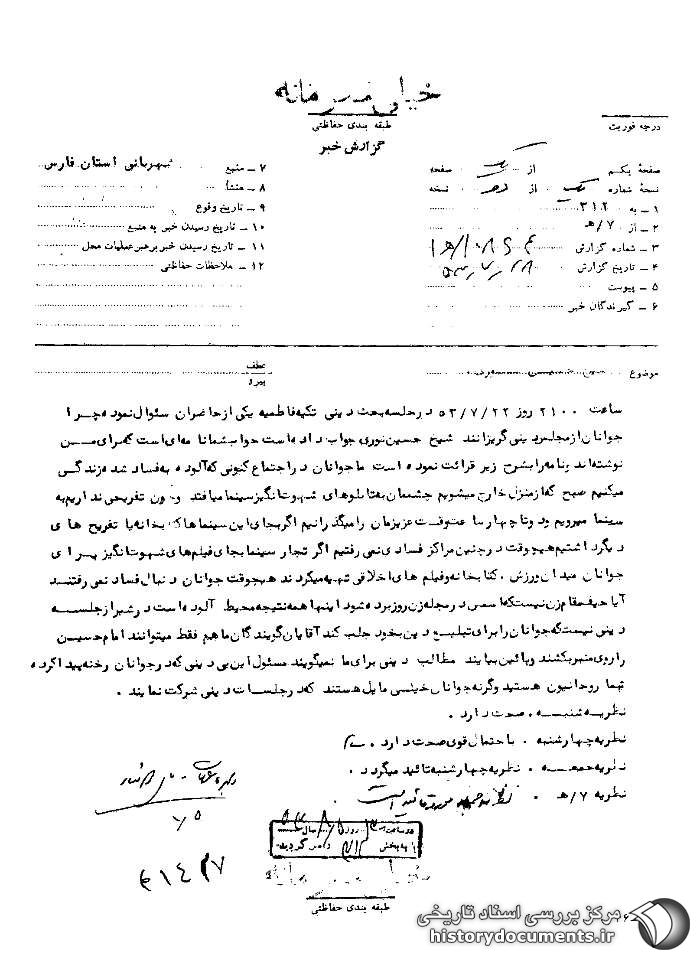 خیلی محرمانه
طبقه بندی حفاظتی
گزارش خبر
درجه فوریت
صفحهٔ یکم از یک صفحه
نسخهٔ شماره یک از نسخه
۱ ـ به ۳۱۲
۲ ـ از ۷/هـ
۳ ـ شماره گزارش
۴ ـ تاریخ گزارش
۵ ـ پیوست
۶ ـ گیرندگان خبر
۷ ـ منبع شهربانی استان فارس
۸ ـ منشأ
۹ ـ تاریخ وقوع
۱۰ ـ تاریخ رسیدن خبر به منبع
۱۱ ـ تاریخ رسیدن خبر برهبر عملیات محل
۱۲ ـ ملاحظات حفاظتی
موضوع
عطف
پیرو
ساعت ۲۱۰۰ روز ۵۳/۷/۲۲ در جلسه بحث دینی تکیه فاطمیه یکی از حاضران سئوال نموده چرا
جوانان از مجلس دینی گریزانند شیخ حسین نوری جواب داده است جواب شما نامه‌ای است که برای من
نوشته‌اند و نامه را بشرح زیر قرائت نموده است ما جوانان در اجتماع کنونی که آلوده به فساد شده زندگی
میکنیم صبح که از منزل خارج میشویم چشممان به تابلوهای شهوت انگیز سینما میافتد و چون تفریحی نداریم به
سینما میرویم و دو تا چهار ساعت وقت عزیزمان را میگذرانیم اگر بجای این سینماها کتابخانه یا تفریح های
دیگر داشتیم هیچوقت در چنین مراکز فسادی نمی رفتیم اگر تجار سینما بجای فیلم های شهوت انگیز برای
جوانان میدان ورزش ، کتابخانه و فیلم های اخلاقی تهیه میکردند هیچوقت جوانان دنبال فساد نمی رفتند
آیا حیف مقام زن نیست که اسمی در مجله زن روز برده شود اینها همه نتیجه محیط آلوده است در شیراز جلسه
دینی نیست که جوانان را برای تبلیغ دین بخود جلب کند آقایان گویندگان ما هم فقط میتوانند امام حسین
را روی منبر بکشند و پائین بیایند مطالب دینی برای ما نمیگویند مسئول این بی دینی که در جوانان رخنه پیدا کرده
شما روحانیون هستید وگرنه جوانان خیلی مایل هستند که در جلسات دینی شرکت نمایند .
نظریه شنبه . صحت دارد .
نظریه چهارشنبه . باحتمال قوی صحت دارد .
نظریه جمعه . نظریه چهارشنبه تائید میگردد .
نظریه ۷/هـ . نظریه جمعه مورد تائید است
طبقه بندی حفاظتی
مرکز بررسی اسناد تاریخی
historydocuments.ir